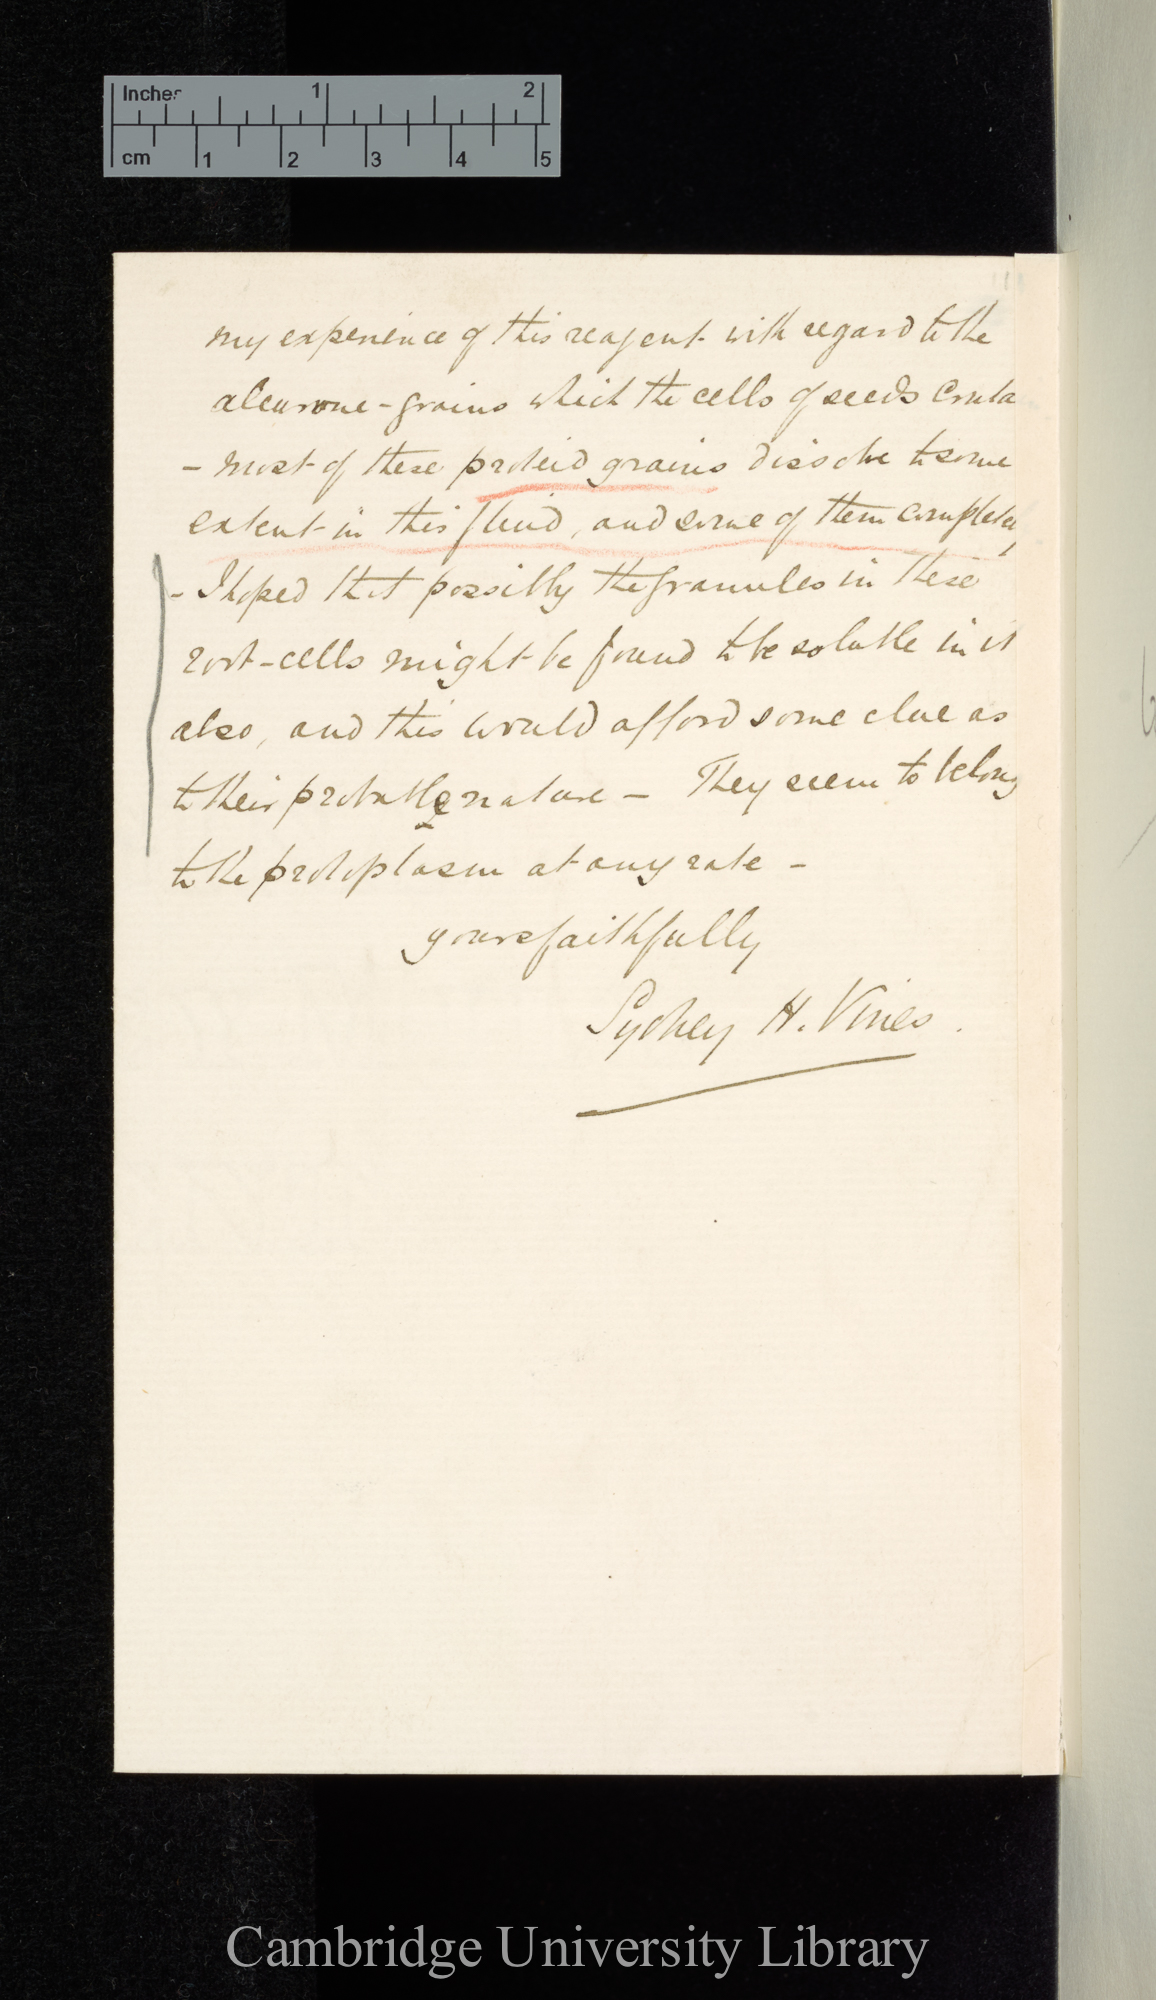 Inches 1 2
cm 1 2 3 4 5
my experience of this reagent with regard to the
aleurone-grains which the cells of seeds conta
- most of these proteid grains dissolve to some
extent in this fluid, and some of them completely
- I hoped that possibly the granules in these
root-cells might be found to be soluble in it
also, and this would afford some clue as
to their probable nature — They seem to belong
to the protoplasm at any rate -
yours faithfully
Sydney H. Vines.
Cambridge University Library